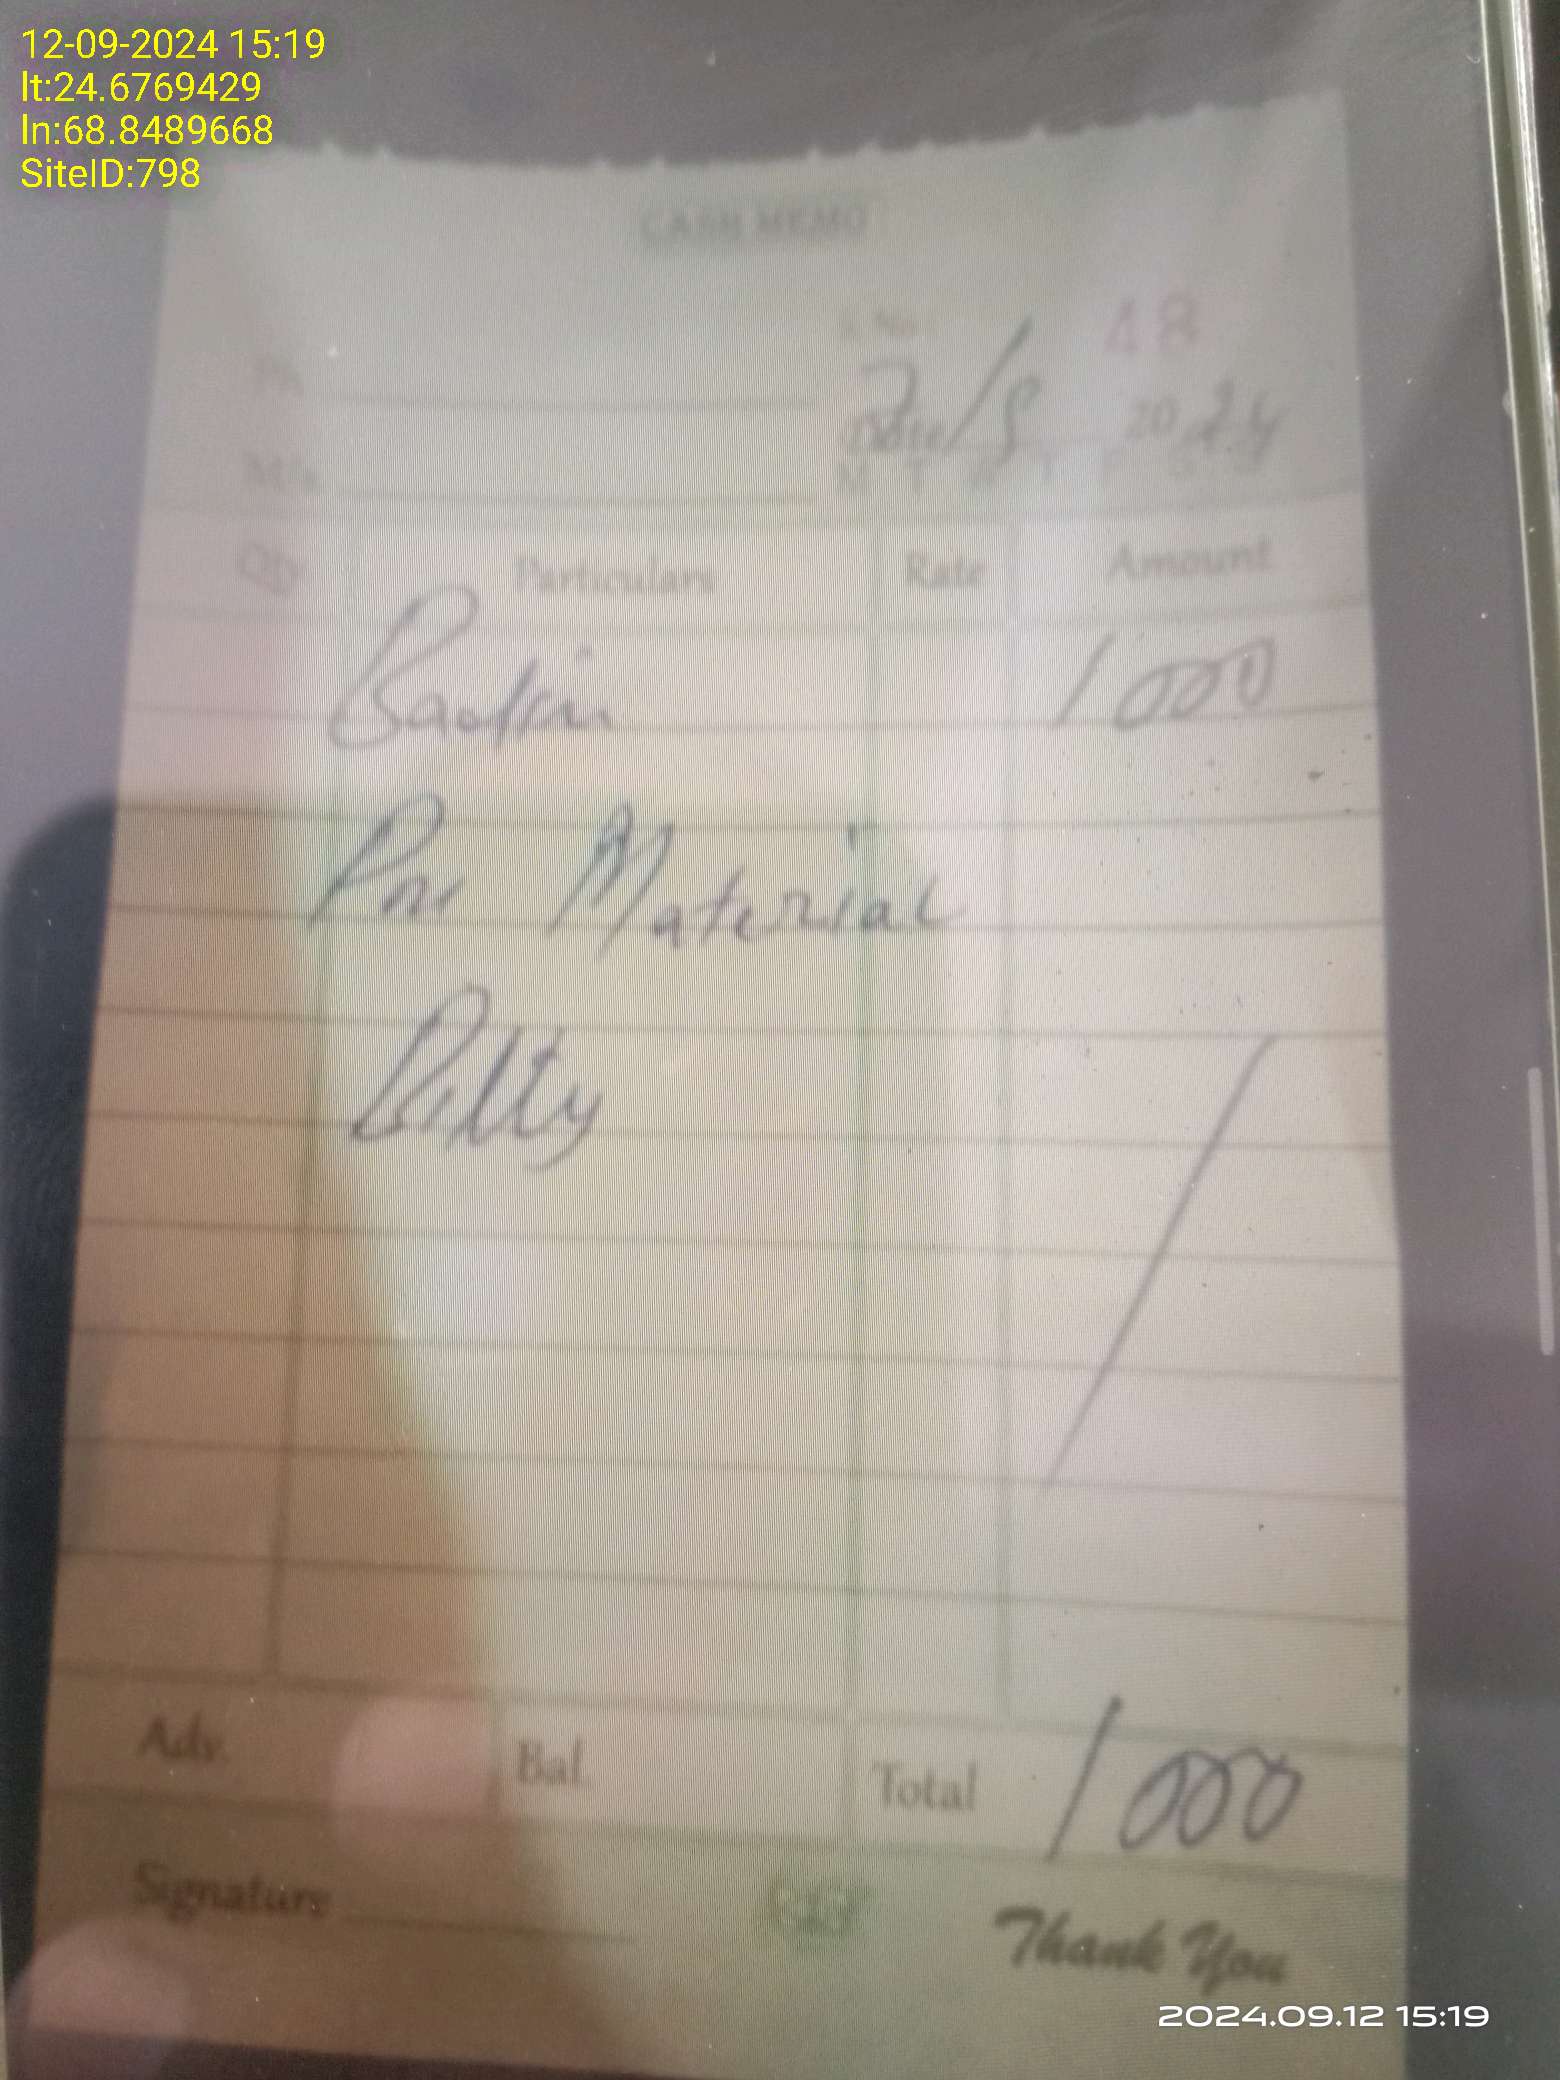 12-09-2024 15:19
lt:24.6769429
ln:68.8489668
SiteID:798
CASH MEMO
No 48
Ph
Date 7/9 2024
M/s
M T W T F S S
Qty Particulars Rate Amount
1000
Material
Bilty
Adv. Bal. Total 1000
Signature
Thank You
2024.09.12 15:19